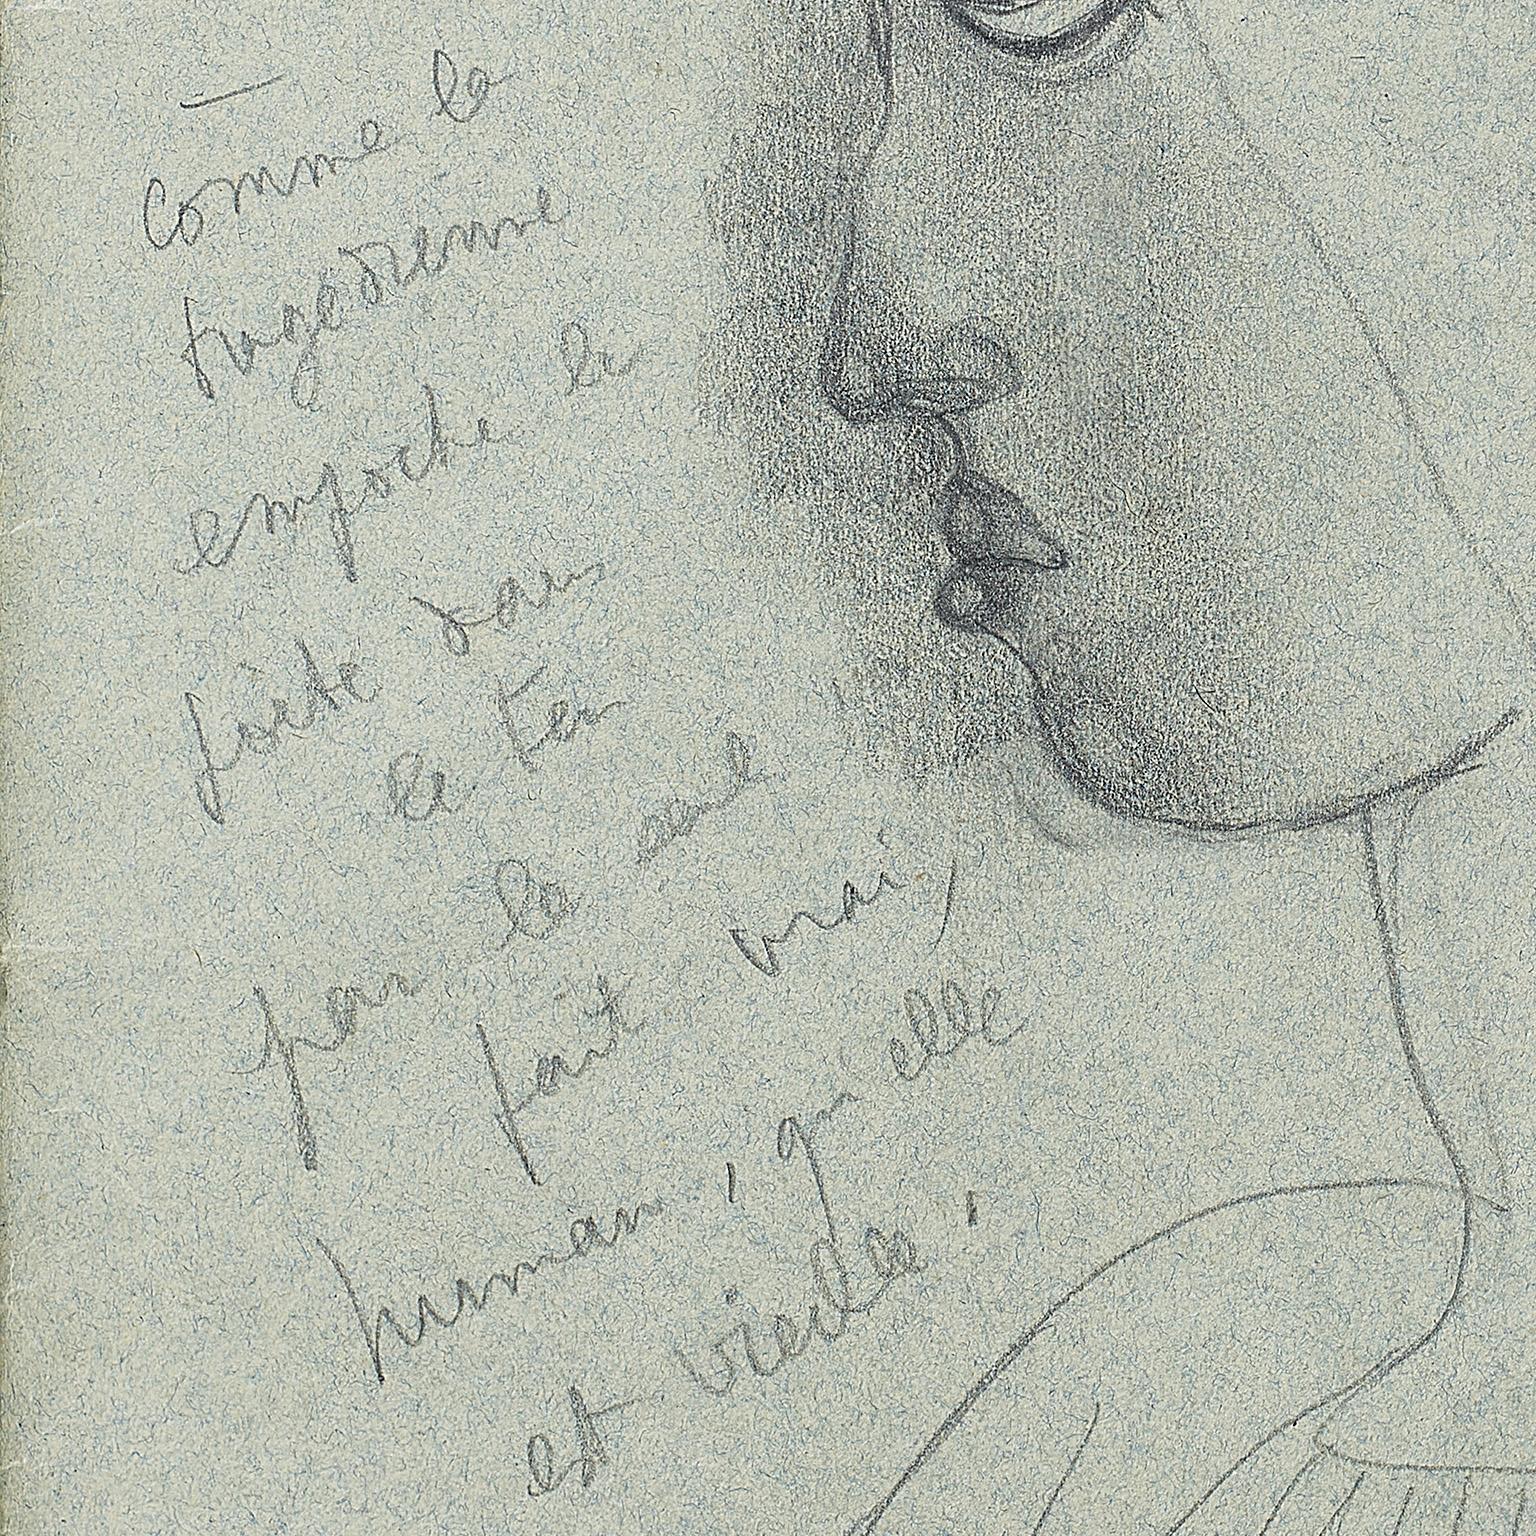 — Comme la
tragedienne
empoche le
poete dans
le ten
par le seul
fait vrai,
humain, qu elle
est vieille